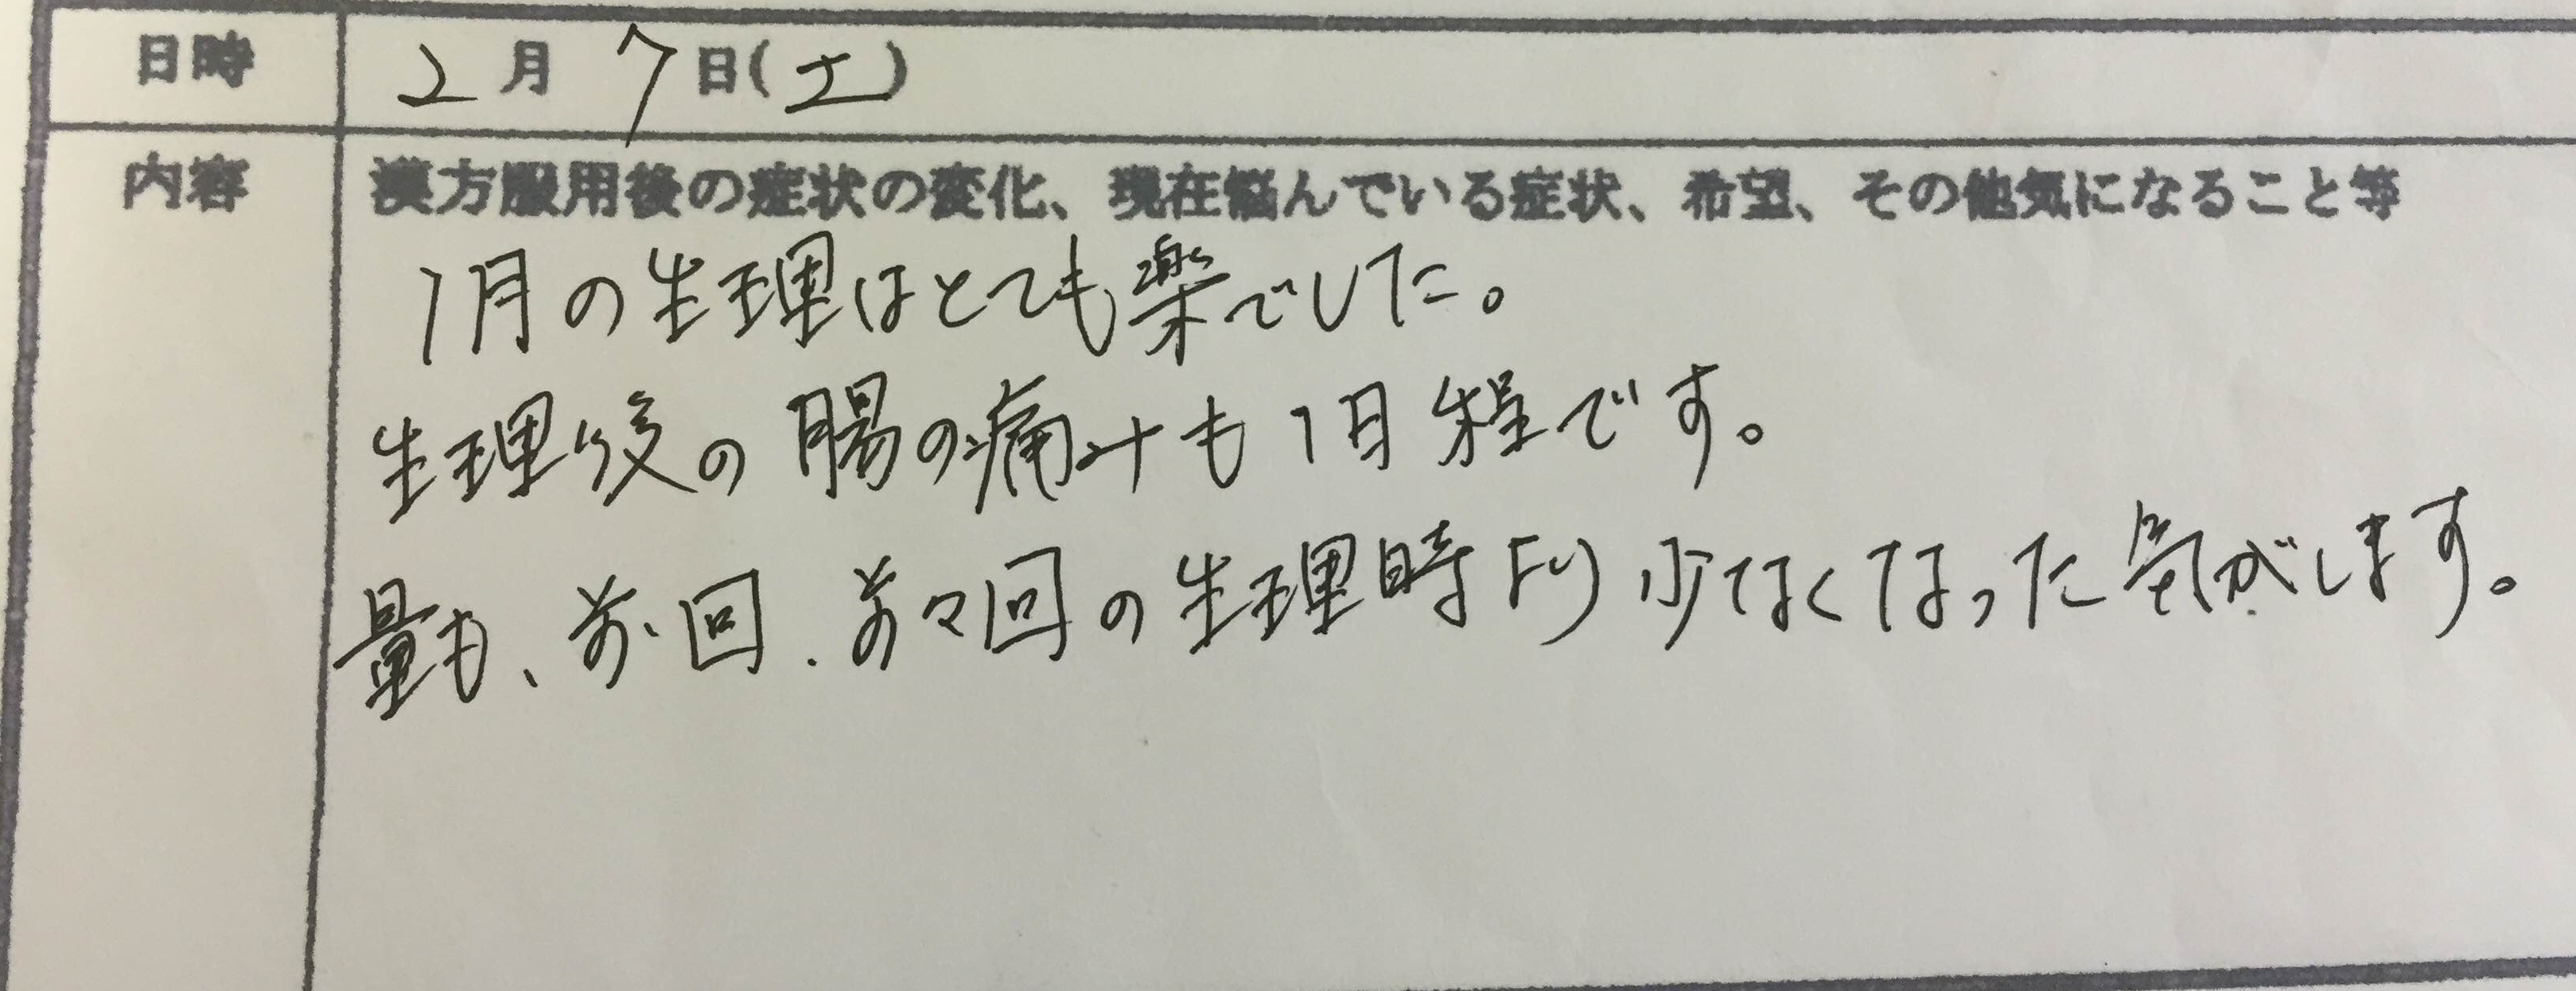 日時 2月7日(土)
内容 漢方服用後の症状の変化、現在悩んでいる症状、希望、その他気になること等
1月の生理はとても楽でした。
生理後の腸の痛みも1日程です。
量も、前回、前々回の生理時より少なくなった気がします。